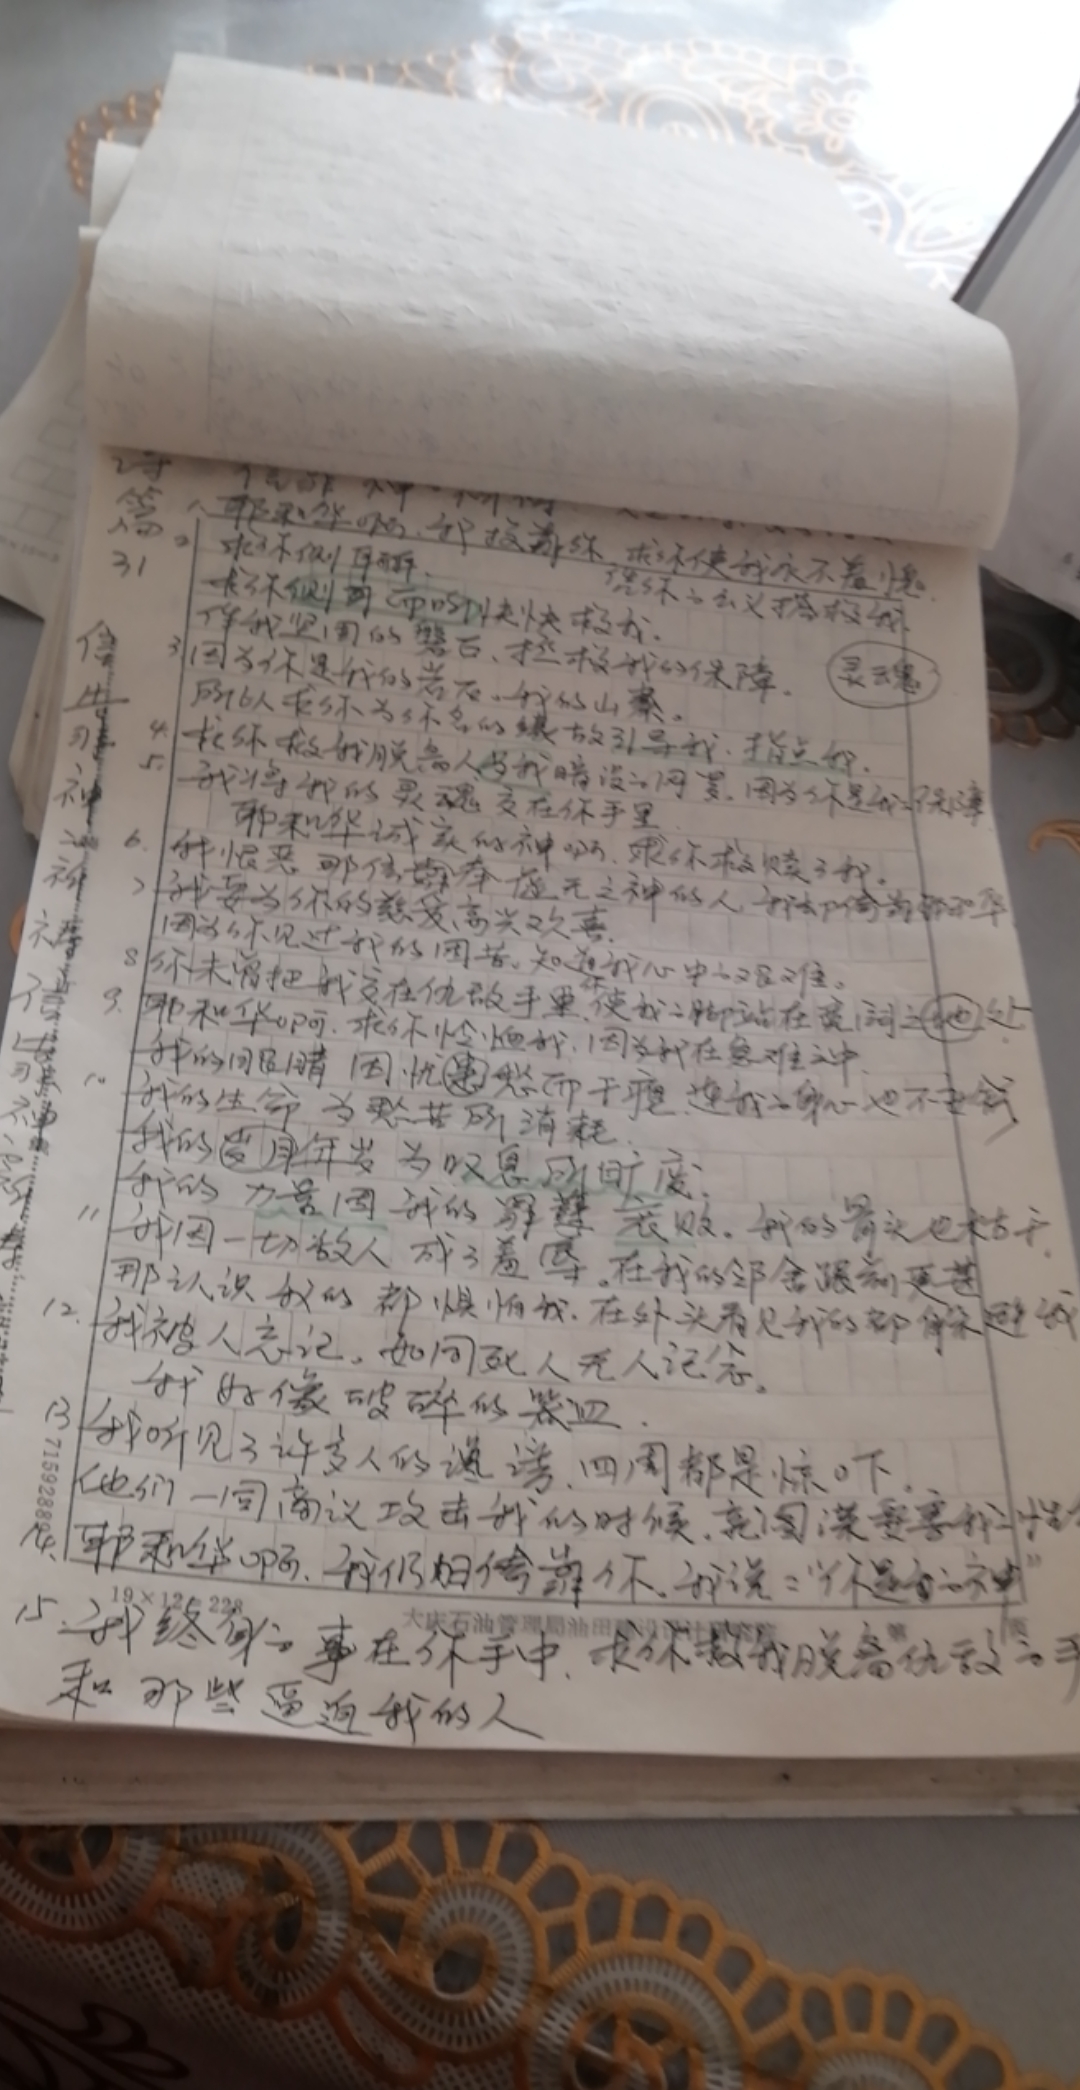 诗
篇
31
1 耶和华啊、我投靠你、求你使我永不羞愧。
凭你的公义搭救我。
2 求你侧耳听.
求你侧耳而听快快救我。
作我坚固的磐石、拯救我的保障。
灵魂
3 因为你是我的岩石、我的山寨。
所以求你为你名的缘故引导我、指点我.
4. 求你救我脱离人为我暗设的网罗。因为你是我的保障
5. 我将我的灵魂交在你手里.
耶和华诚实的神啊、求你救赎了我。
6. 我恨恶那信奉虚无之神的人 我却倚靠耶和华
7 我要为你的慈爱高兴欢喜.
因为你见过我的困苦、知道我心中的艰难。
8 你未曾把我交在仇敌手里、你使我的脚站在宽阔之地处
9. 耶和华啊、求你怜恤我、因为我在急难之中.
我的眼睛因忧愁而干瘪、连我的身心也不
10 我的生命为愁苦所消耗.
我的岁月年岁为叹息所旷废.
我的力量因我的罪孽衰败。我的骨头也枯干.
11 我因一切敌人成了羞辱。在我的邻舍跟前更甚
那认识我的都惧怕我、在外头看见我的都躲避我
12. 我被人忘记。如同死人无人记念。
我好像破碎的器皿.
13 我听见了许多人的谗谤、四周都是惊吓.
他们一同商议攻击我的时候、就图谋要害我的性命
14. 耶和华啊、我仍旧倚靠你。我说："你是我的神"
7159288
19×12=228
大庆石油管理局油田建设设计研究院 第 页
15. 我终身的事在你手中、求你救我脱离仇敌的手
和那些逼迫我的人